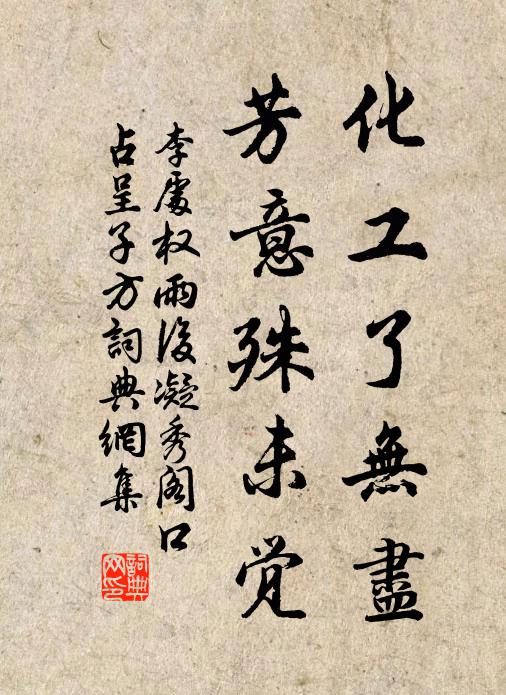 化工了無盡
芳意殊未觉
李處权雨後凝秀阁口
占呈子方詞典網集
詞典网印